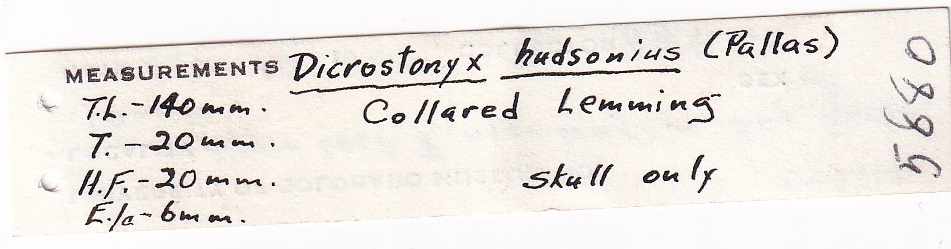 MEASUREMENTS Dicrostonyx hudsonius (Pallas)
T.L. - 140 mm. Collared Lemming
T. - 20 mm.
H.F. - 20 mm. Skull only
E./a - 6 mm.